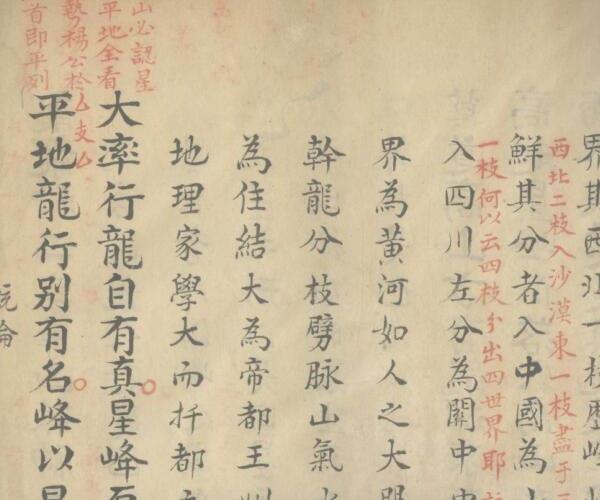 界其西北一枝歷崆
西北二枝入沙漠東一枝盡于
鮮其分者入中國為
一枝何以云四枝分出四世界耶
入四川左分為關中
界為黃河如人之大
幹龍分枝劈脉山氣
為住結大為帝都王
地理家學大而扦都
大率行龍自有真星峰
山必認星
平地全看
勢楊公於
首即平列
平地龍行别有名峰以